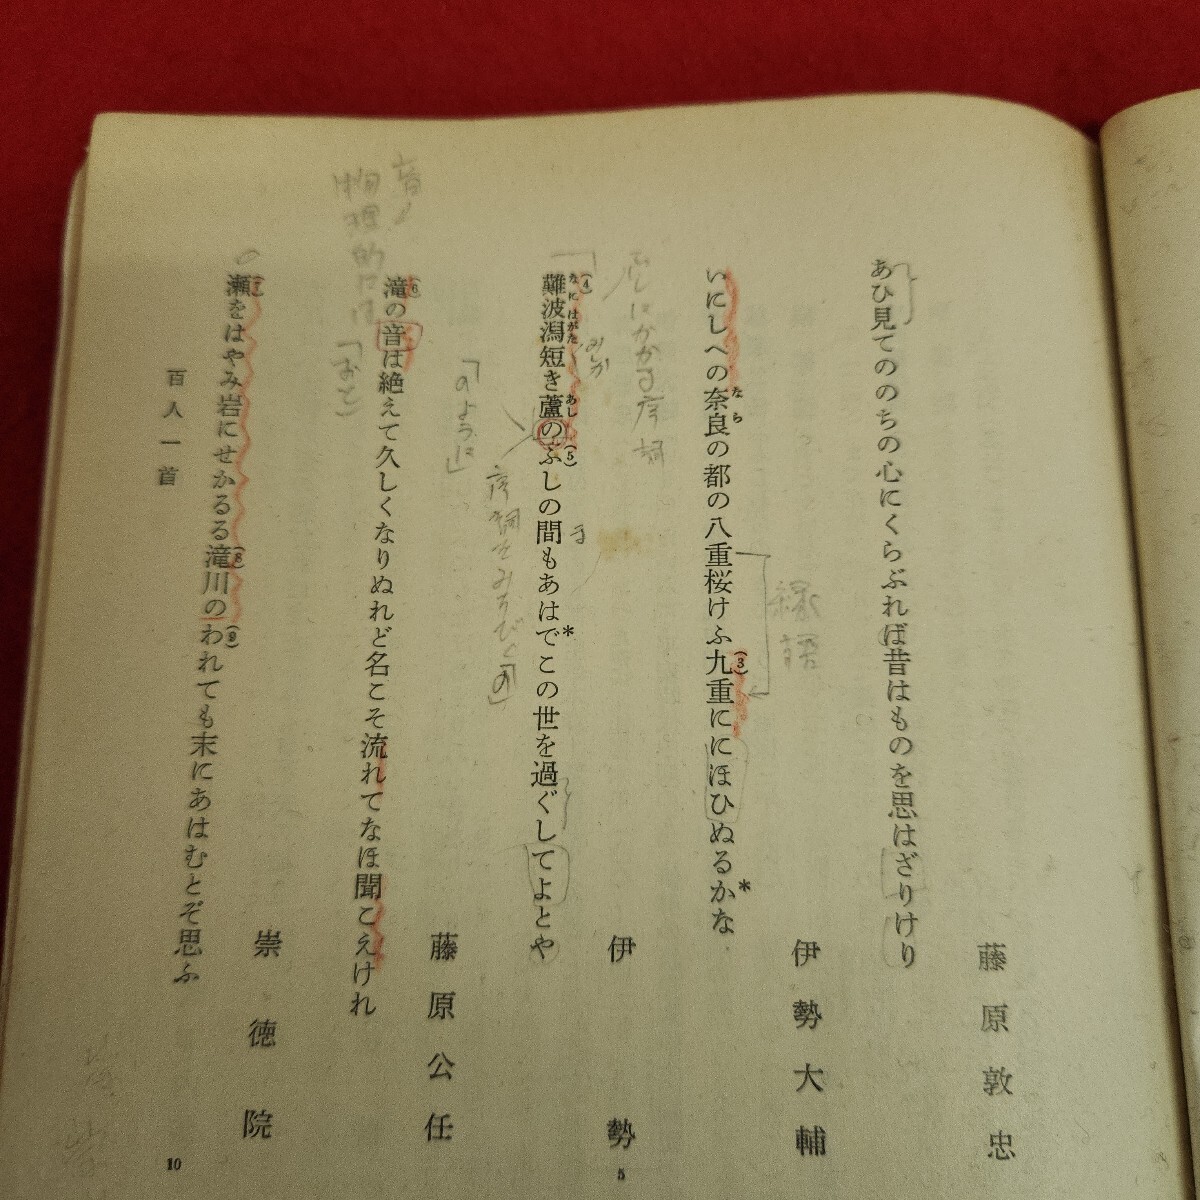 藤原敦忠
あひ見てののちの心にくらぶれば昔はものを思はざりけり
伊勢大輔
縁語
いにしへの奈良の都の八重桜けふ九重ににほひぬるかな
なら
(3)
*
伊勢
ふしにかかる序詞
難波潟短き蘆のふしの間もあはでこの世を過ぐしてよとや
なにはがた
あし
(4)
(5)
*
みじか
ま
序詞をみちびく「の」
「のように」
5
藤原公任
滝の音は絶えて久しくなりぬれど名こそ流れてなほ聞こえけれ
(6)
音
物理的には
「おと」
崇徳院
瀬をはやみ岩にせかるる滝川のわれても末にあはむとぞ思ふ
(7)
(8)
(9)
百人一首
10